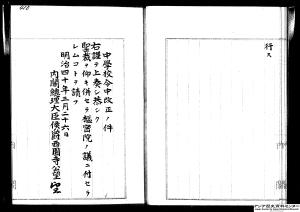 行ス
中學校令中改正ノ件
右謹テ上奏シ恭シク
聖裁ヲ仰キ併セテ樞密院ノ議ニ付セラ
レムコトヲ請フ
明治四十年三月二十六日
内閣總理大臣侯爵西園寺公望
アジア歴史資料センター